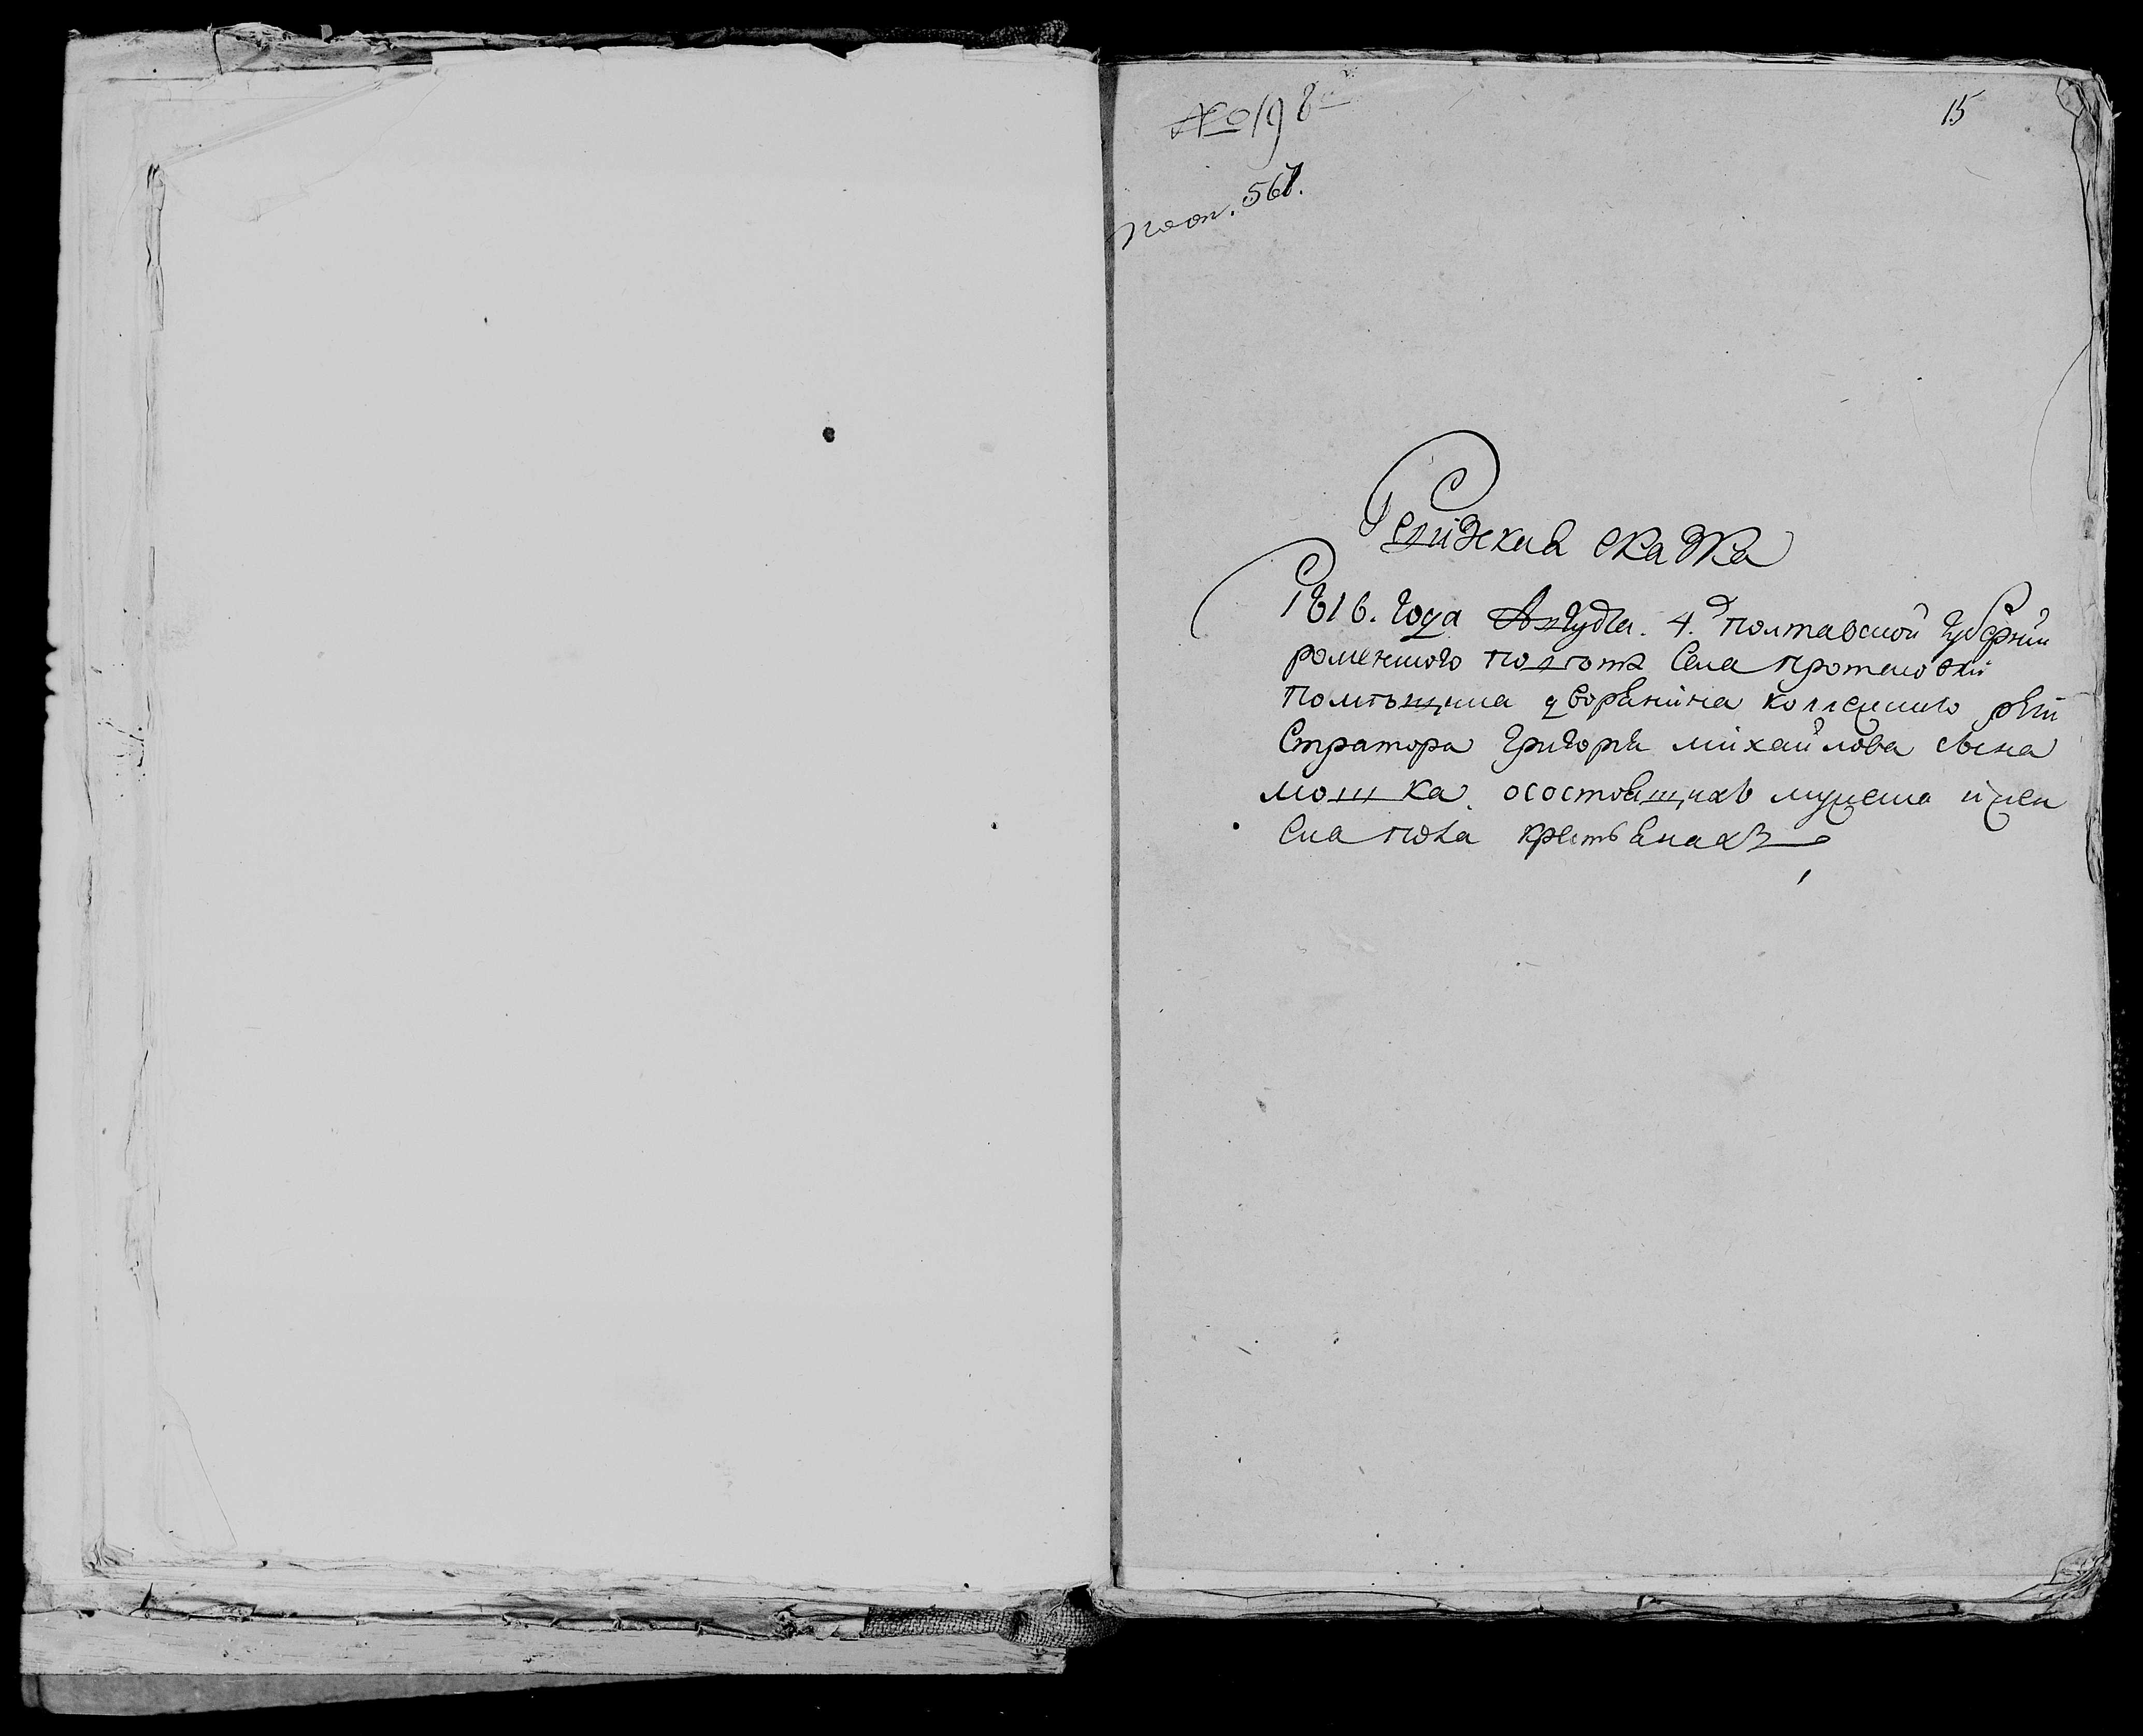 № 198й
15
по оп. 567.
Ревизская сказка
1816. года Августа. 4.д полтавской губернии
роменского повѣта Села протасовки
Помѣщика дворянина коллежского реги
Стратора григория михайлова сына
мошка. осостоящихъ мужеска ижен
ска пола крестьянахъ